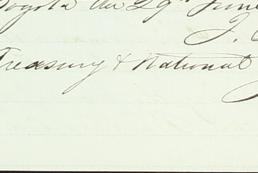 Bogota the 29th June
J.
Treasury & National